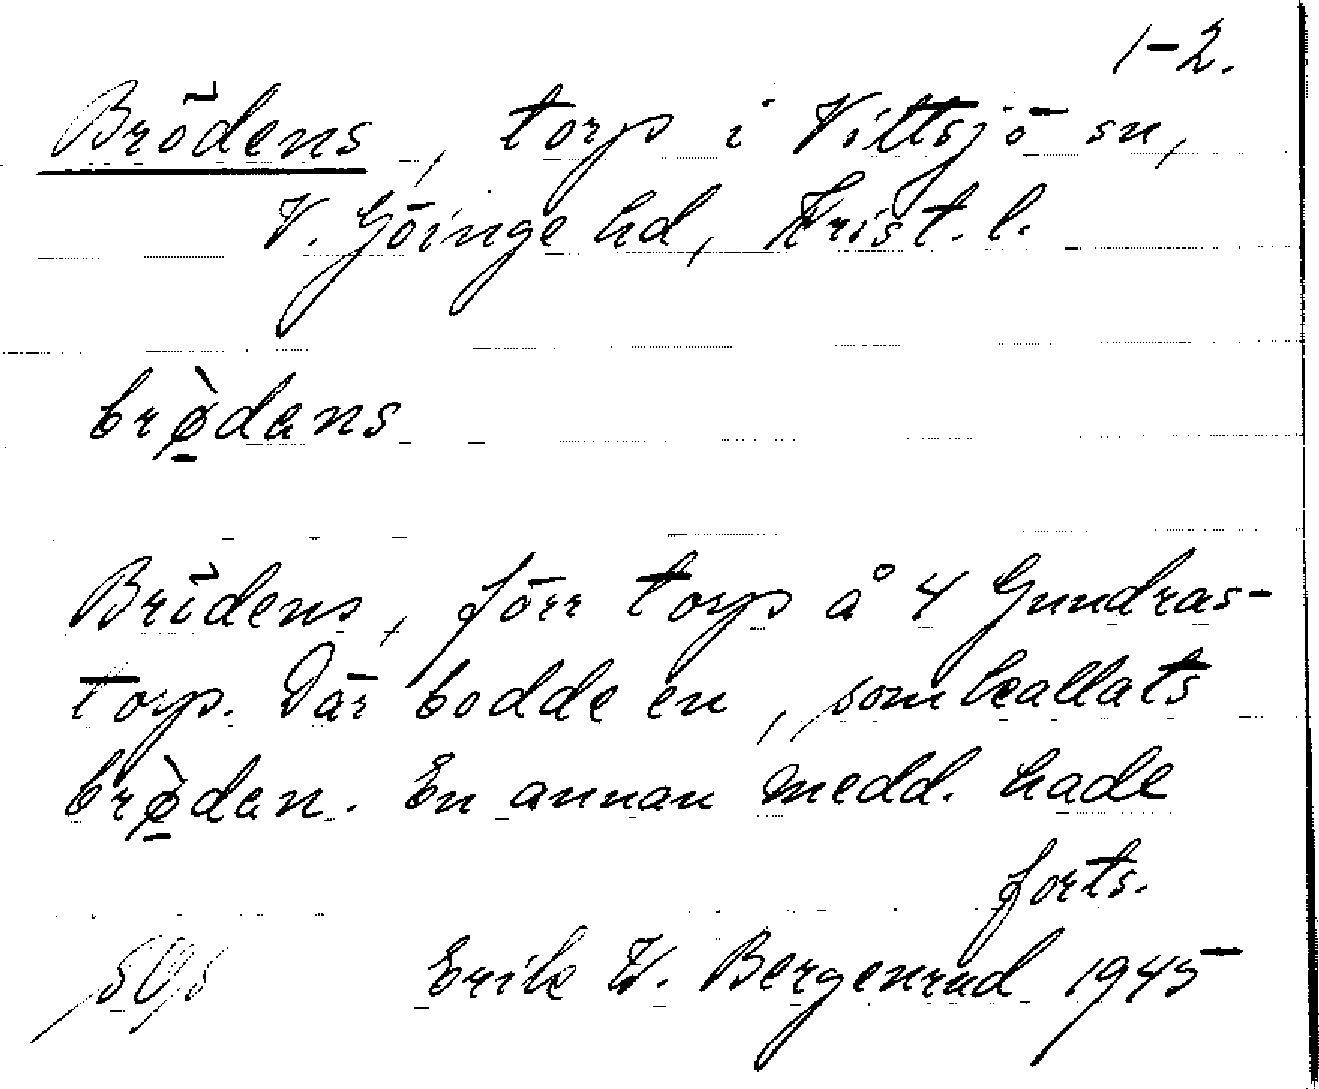 1-2.
Brödens, torp i Vittsjö sn,
V. Göinge hd, Krist. l.
brø̱̀dans
Brödens, förr torp å 4 Gundras-
torp. Där bodde en, som kallats
brø̱̀dan. En annan medd. hade
forts.
Erik W. Bergenrud 1945